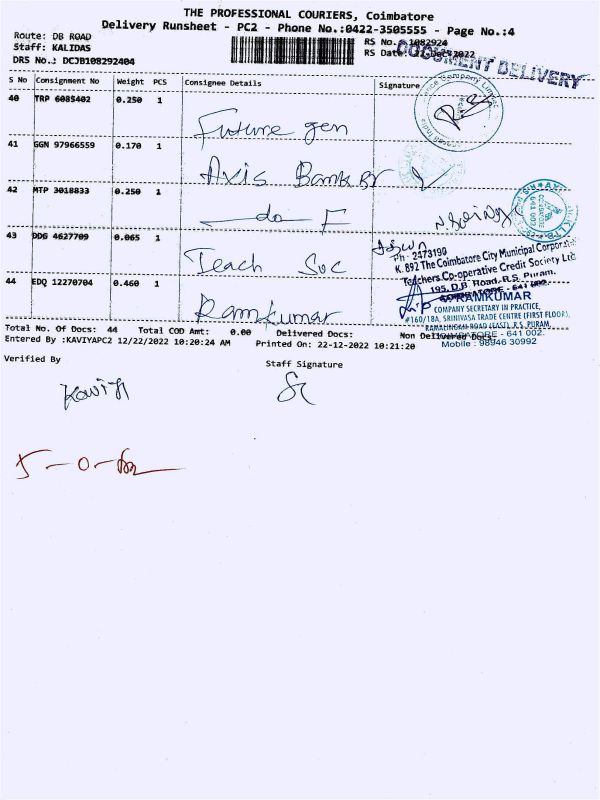 THE PROFESSIONAL COURIERS, Coimbatore
Delivery Runsheet - PC2 - Phone No.:0422-3505555 - Page No.:4
Route: DB ROAD
RS No.: 1082924
Staff: KALIDAS
RS Date: 22-Dec-2022
DOCUMENT DELIVERY
DRS No.: DCJB108292404
S No Consignment No Weight PCS Consignee Details Signature
40 TRP 6085402 0.250 1 Future gen
41 GGN 97966559 0.170 1 Axis Bank BR
42 MTP 3018833 0.250 1 do
43 DDG 4627709 0.065 1 Teach Soc
Ph - 2473190
K. 892 The Coimbatore City Municipal Corporation
Teachers Co-operative Credit Society Ltd
195, D.B Road, R.S. Puram,
COIMBATORE - 641 002.
44 EDQ 12270704 0.460 1 Ramkumar
RAMKUMAR
COMPANY SECRETARY IN PRACTICE,
#160/18A, SRINIVASA TRADE CENTRE (FIRST FLOOR),
RAMALINGAM ROAD (EAST), R.S. PURAM,
COIMBATORE - 641 002.
Mobile : 98946 30992
Total No. Of Docs: 44 Total COD Amt: 0.00 Delivered Docs: Non Delivered Docs:
Entered By :KAVIYAPC2 12/22/2022 10:20:24 AM Printed On: 22-12-2022 10:21:20
Verified By
Staff Signature